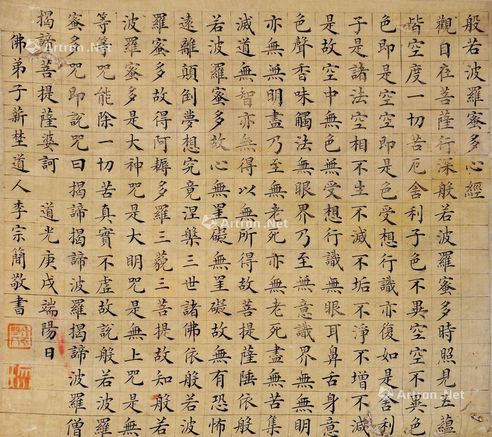 般若波羅蜜多心經
觀自在菩薩行深般若波羅蜜多時照見五蘊
皆空度一切苦厄舍利子色不異空空不異色
色即是空空即是色受想行識亦復如是舍利
子是諸法空相不生不滅不垢不淨不增不減
是故空中無色無受想行識無眼耳鼻舌身意
色聲香味觸法無眼界乃至無意識界無無明
亦無無明盡乃至無老死亦無老死盡無苦集
滅道無智亦無得以無所得故菩提薩埵依般
若波羅蜜多故心無罣礙無罣礙故無有恐怖
遠離顛倒夢想究竟涅槃三世諸佛依般若波
羅蜜多故得阿耨多羅三藐三菩提故知般若
波羅蜜多是大神咒是大明咒是無上咒是無
等等咒能除一切苦真實不虛故說般若波羅
蜜多咒即說咒曰揭諦揭諦波羅揭諦波羅僧
揭諦菩提薩婆訶 道光庚戌端陽日
佛弟子薪埜道人李宗簡敬書
Artron.Net
Artron.Net
Artron.Net
Artron.Net